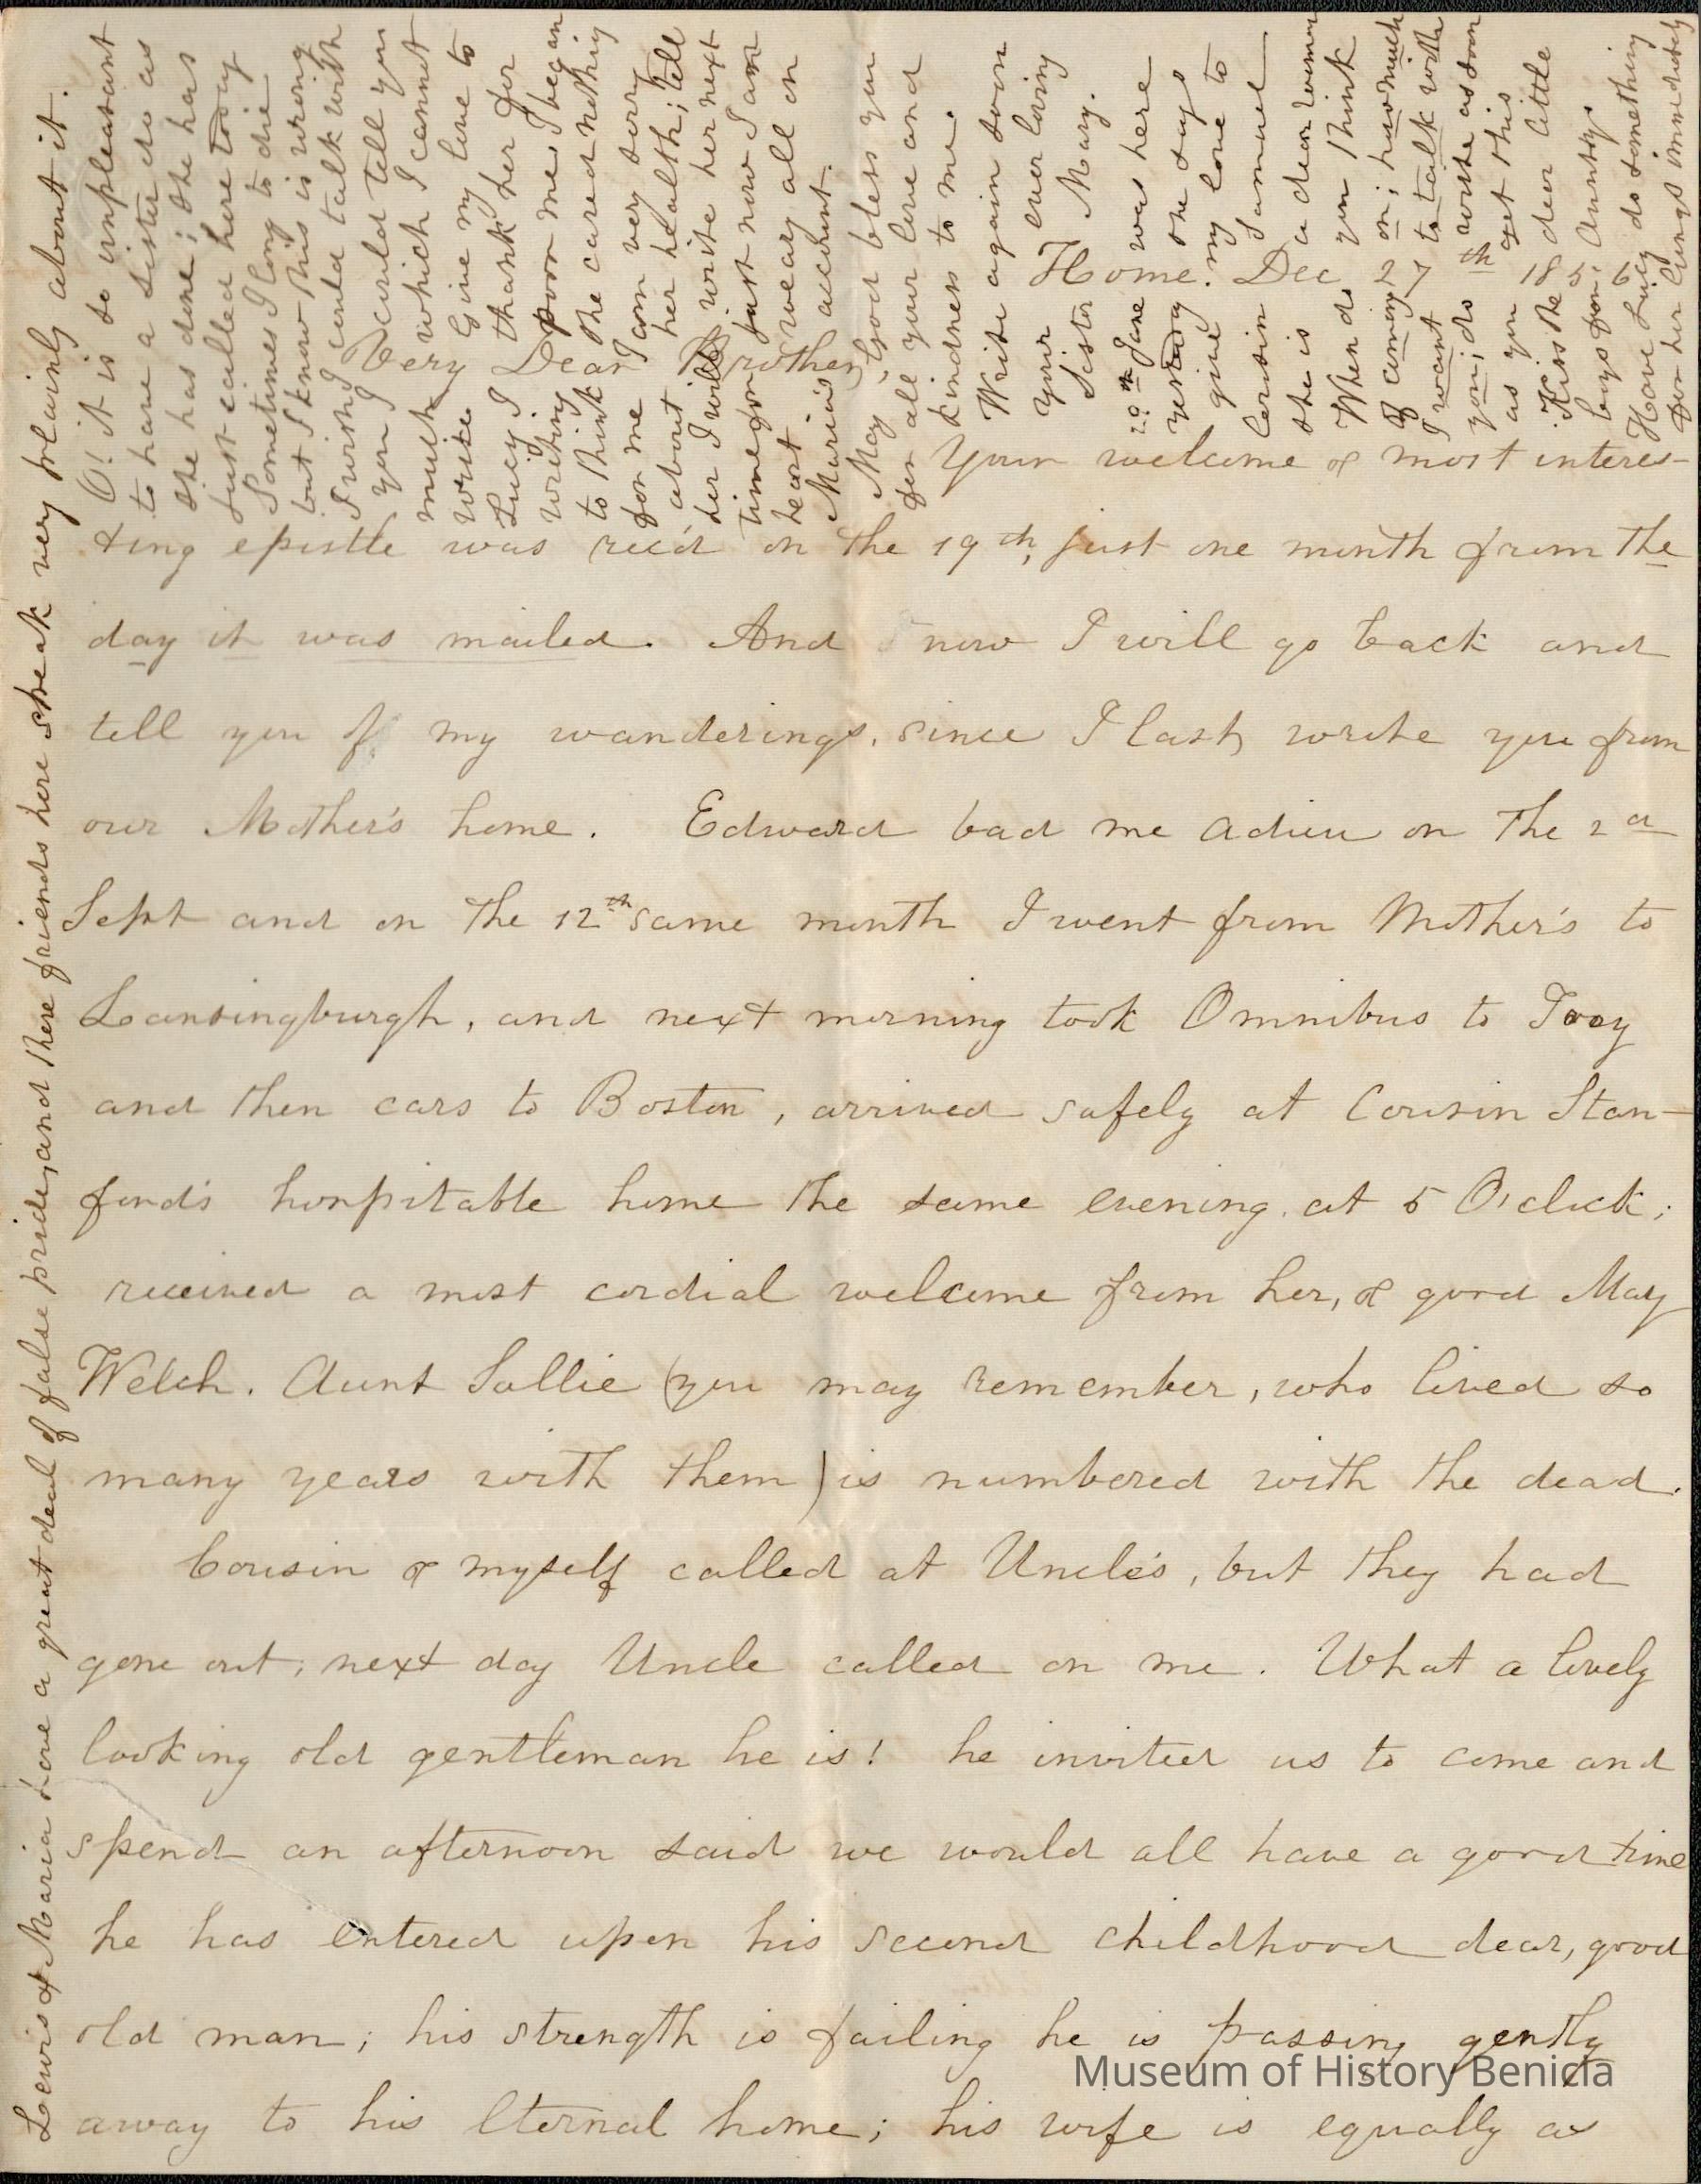 Home. Dec 27th 1856
Very Dear Brother,
Your welcome & most interes-
ting epistle was rec'd on the 19th, just one month from the
day it was mailed. And now I will go back and
tell you of my wanderings, since I last wrote you from
our Mother's home. Edward bad me adieu on the 2d
Sept and on the 12th same month I went from Mother's to
Lansingburgh, and next morning took Omnibus to Troy
and then cars to Boston, arrived safely at Cousin Stan-
ford's hospitable home the same evening at 5 O'clock;
received a most cordial welcome from her, & good May
Welch. Aunt Sallie (you may remember, who lived so
many years with them) is numbered with the dead.
Cousin & myself called at Uncle's, but they had
gone out; next day Uncle called on me. What a lovely
looking old gentleman he is! he invited us to come and
spend an afternoon said we would all have a good time
he has entered upon his second childhood dear, good
old man; his strength is failing he is passing gently
away to his eternal home; his wife is equally as
Lewis & Maria have a great deal of false pride, and there friends here speak very plainly about it.
O! it is so unpleasant
to have a sister do as
she has done; she has
just called here today
Sometimes I long to die
but I know this is wrong
I wish I could talk with
you I could tell you
much which I cannot
write. Give my love to
Lucy I thank her for
writing poor me, I began
to think she cared nothing
for me I am very sorry
about her health; tell
her I will write her next
time for just now I am
heart weary all on
Maria's account.
May God bless you
for all your love and
kindness to me.
Write again soon
Your ever loving
Sister Mary.
20th Jane was here
yesterday she says
give my love to
Cousin Samuel
she is a dear woman
When do you think
of coming on; how much
I want to talk with
you; do write as soon
as you get this
Kiss the dear little
boys for Aunty.
Have Lucy do something
for her lungs immediately
Museum of History Benicia